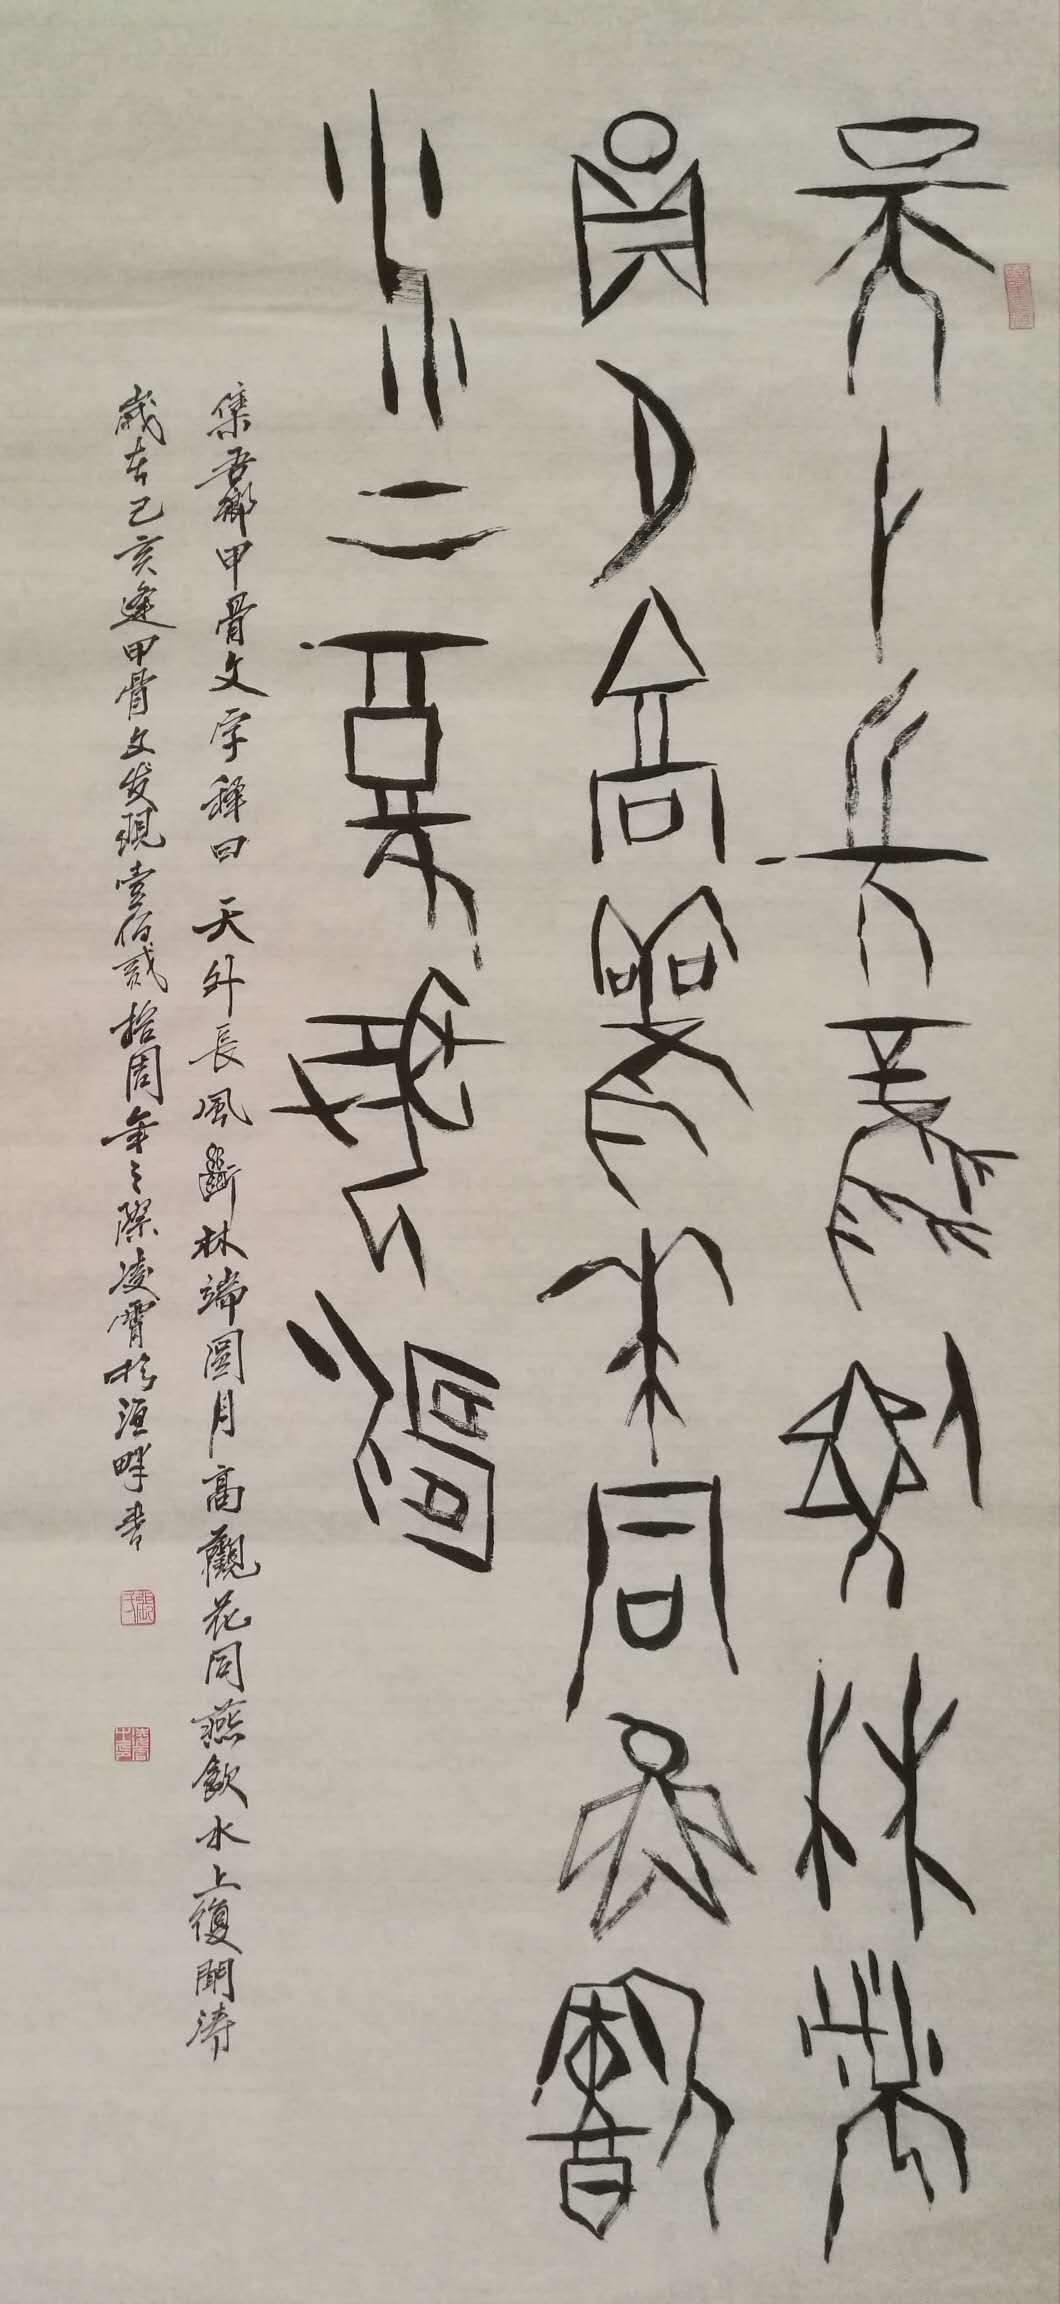 天外長風斷林端
圓月高觀花同燕飲
水上復聞涛
集吾鄉甲骨文字释曰 天外長風斷林端圓月高觀花同燕飲水上復聞涛
歲在己亥逢甲骨文发現壹佰贰拾周年之際凌霄於洹畔書